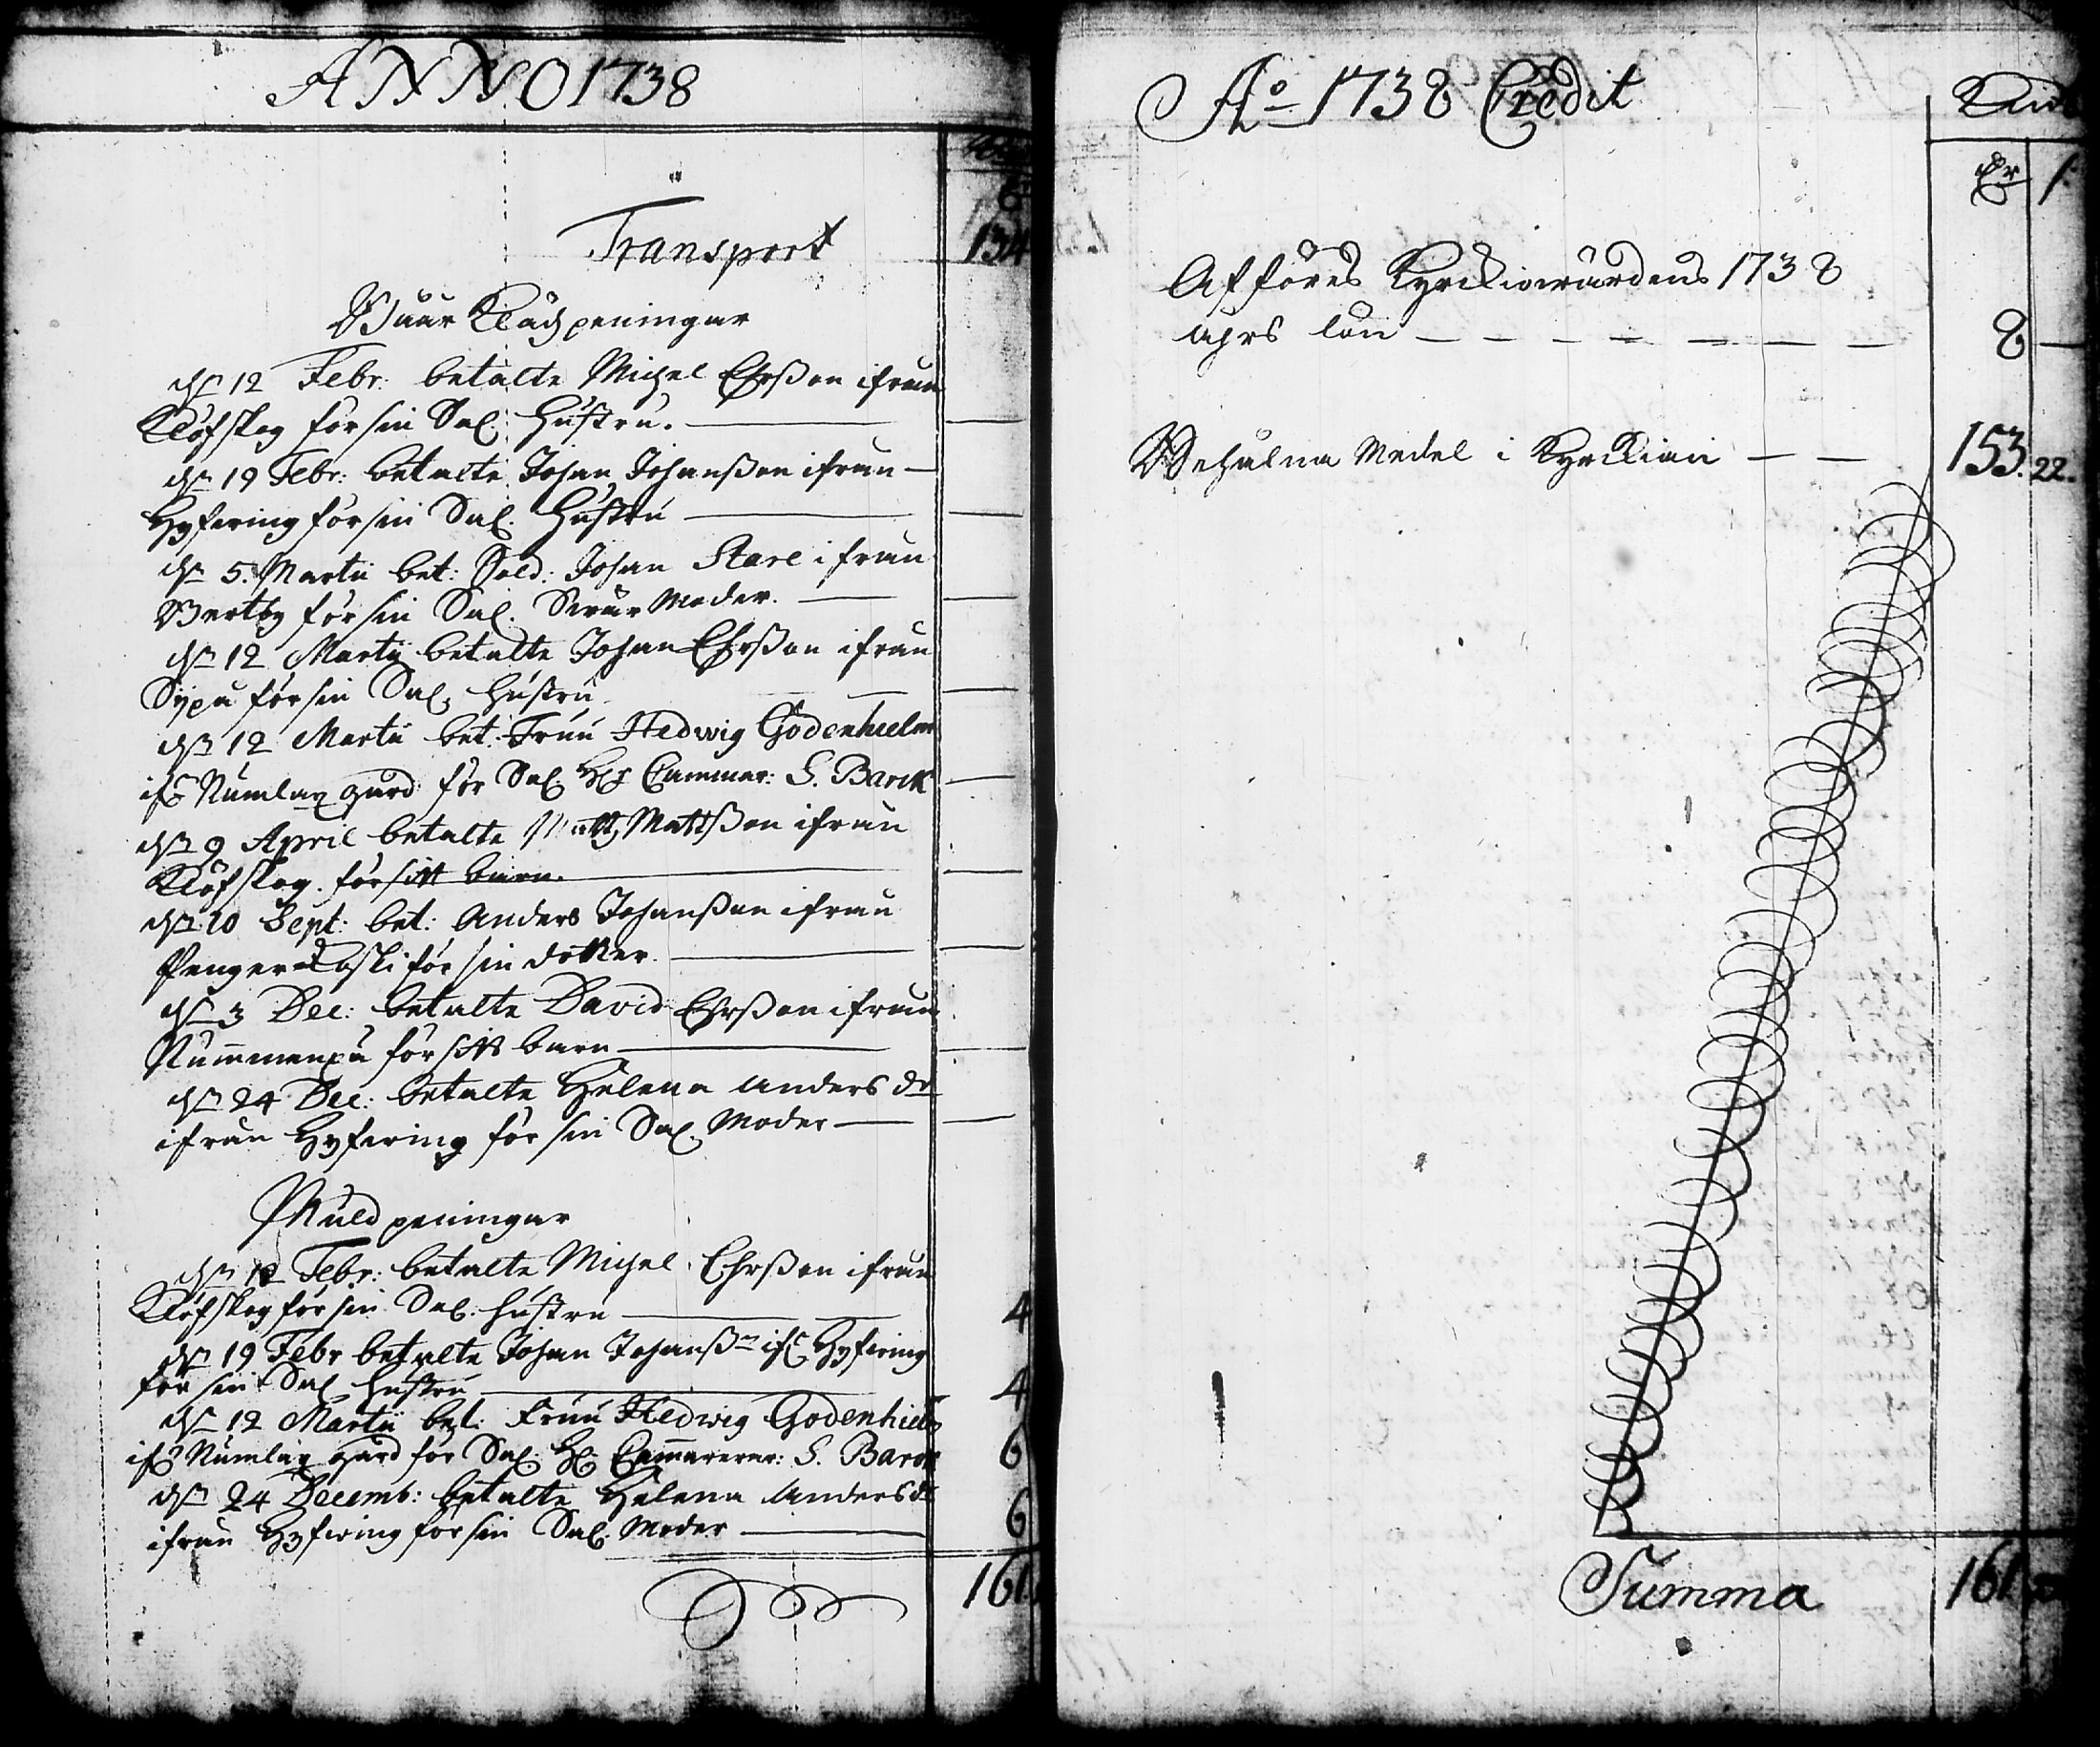 ANNO 1738
Transport 134
Baar Klädz peningar
dn 12 Febr: betalte Michel Ehrsson ifrån
Klöfskog för sin Sal: Hustru.
dn 19 Febr: betalte Johan Johansson ifrån
Hyfering för sin Sal. Hustru
dn 5. Martii bet: Sold: Johan Stare ifrån
Bertby för sin Sal. Swär Moder.
dn 12 Martii betalte Johan Ehrsson ifrån
Sypä för sin Sal. hustru
dn 12 Martii bet: Fruu Hedwig Godenhielm
ifr Numlax gård för Sal. Hr Cammar: S. Barck
dn 9 April betalte Matts Mattsson ifrån
Klöfskog. för sitt barn.
dn 10 Sept: bet: Anders Johansson ifrån
för sin dotter.
dn 3 Dec: betalte David Ehrsson ifrån
Nummenpä för sitt barn
dn 24 Dec: betalte Helena Anders dr
ifrån Hyfering för sin Sal. Moder
Muld peningar
dn 12 Febr: betalte Michel Ehrsson ifrån
Klöfskog för sin Sal: hustru 4
dn 19 Febr betalte Johan Johanssn ifr Hyfering
för sin Sal hustru 4
dn 12 Martii bet: Fruu Hedwig Godenhielm
ifr Numlax gård för Sal. Hr Cammererar: S. Barck 6
dn 24 Decemb: betalte Helena Anders dr
ifrån Hyfering för sin Sal. Moder 6
161
Ao 1738 Credit
Afföres Kyrckiowärdens 1738
ahrs lön 8
Behålna Medel i Kyrckian 153. 22.
Summa 161